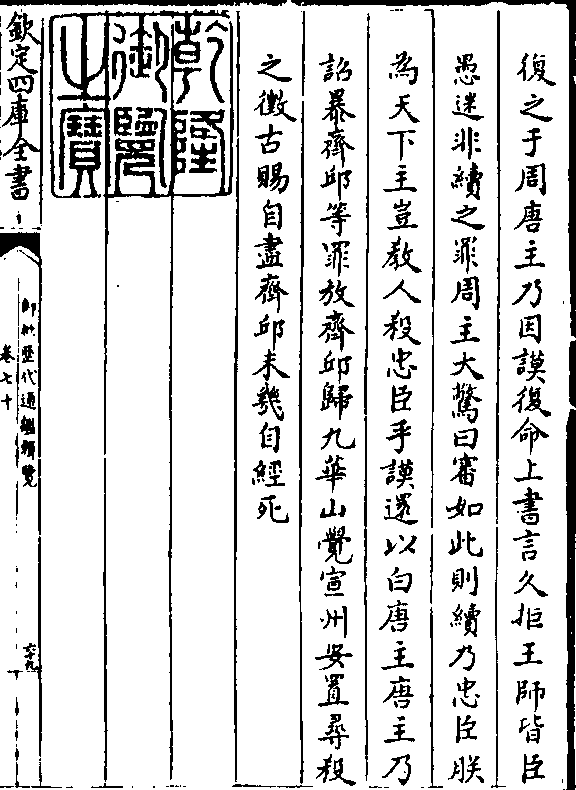 復之于周唐主乃因謨復命上書言久拒王師皆臣
愚迷非續之罪周主大驚曰審如此則續乃忠臣朕
為天下主豈教人殺忠臣乎謨還以白唐主唐主乃
詔暴齊邱等罪放齊邱歸九華山覺宣州安置尋殺
之徵古賜自盡齊邱未幾自經死
乾隆
御覽
之寶
欽定四庫全書
御批歷代通鑑輯覽
卷七十
六十九